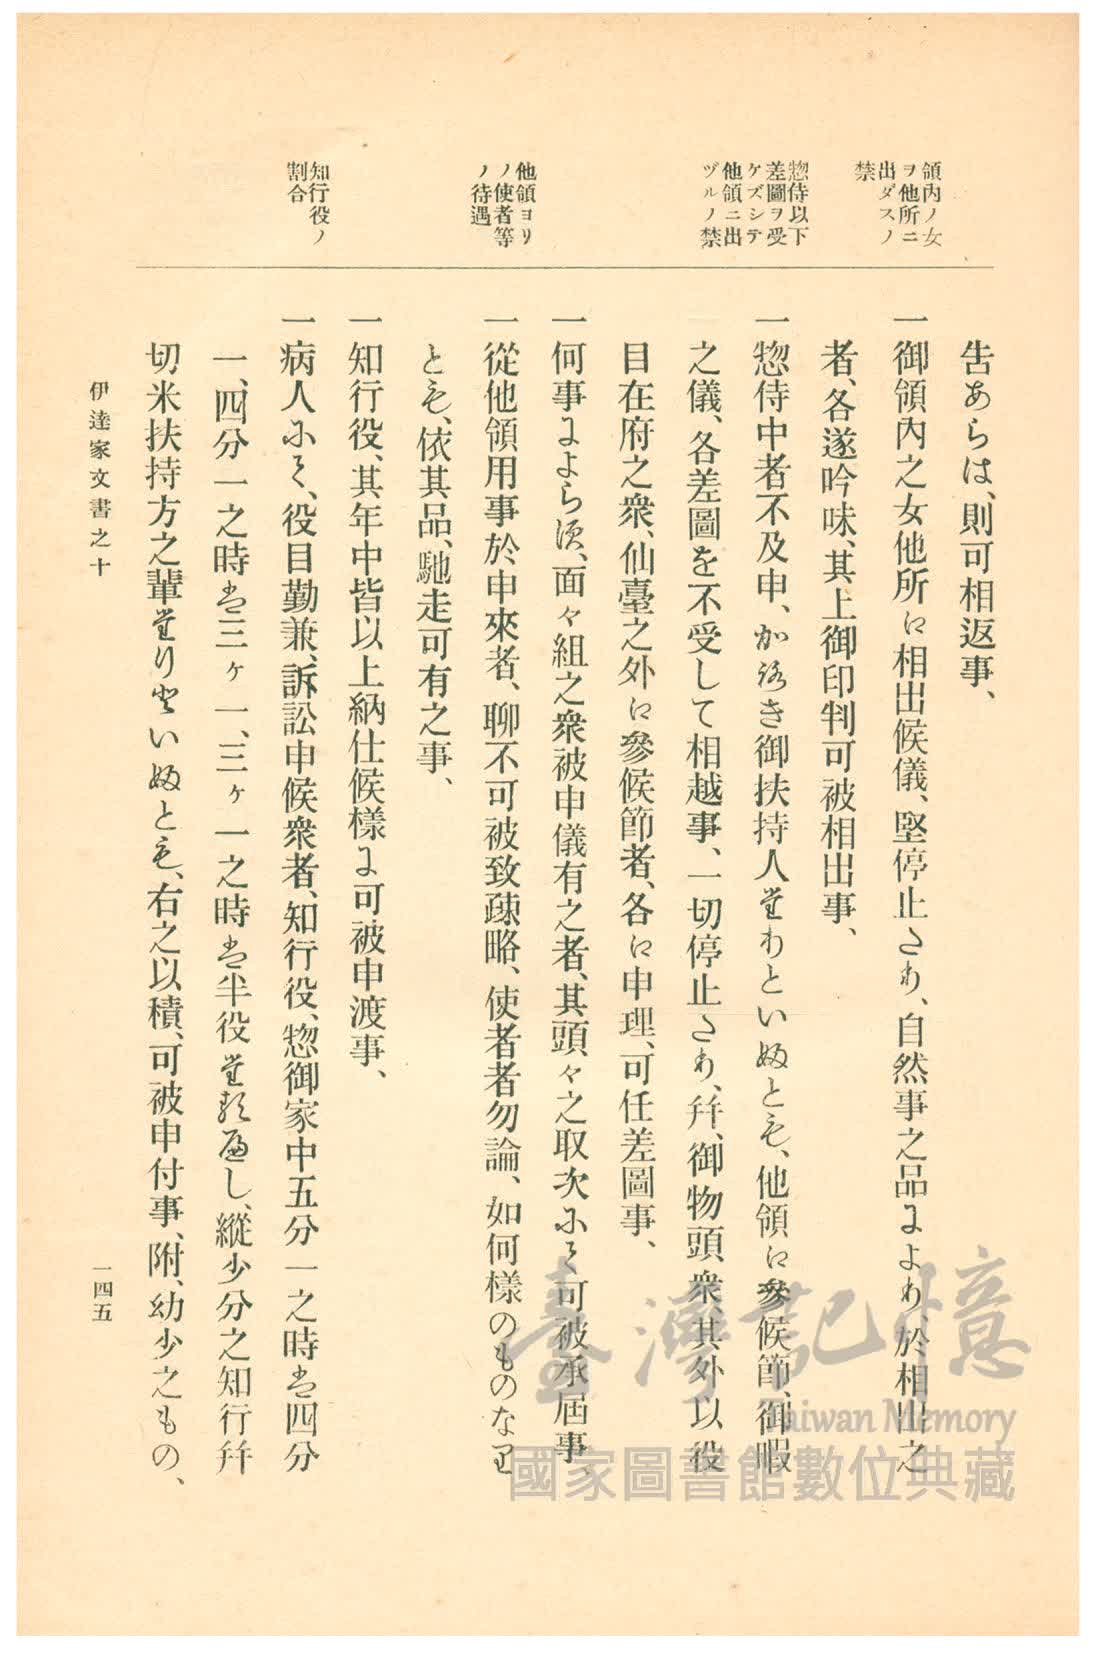 領內ノ女
ヲ他所ニ
出ダスノ
禁
惣侍以下
差圖ヲ受
ケズシテ
他領ニ出
ヅルノ禁
他領ヨリ
ノ使者等
ノ待遇
知行役ノ
割合
吿あらは、則可相返事、
一御領內之女他所に相出候儀、堅停止たり、自然事之品により、於相出之
者、各遂吟味、其上御印判可被相出事、
一惣侍中者不及申、かろき御扶持人たりといふとも、他領に參候節、御暇
之儀、各差圖を不受して相越事、一切停止たり、幷、御物頭衆、其外以役
目在府之衆、仙臺之外に參候節者、各に申理、可任差圖事、
一何事によらす、面々組之衆被申儀有之者、其頭々之取次にて可被承屆事、
一從他領用事於申來者、聊不可被致疎略、使者者勿論、如何樣のものなり
とも、依其品、馳走可有之事、
一知行役、其年中皆以上納仕候樣に可被申渡事、
一病人にて、役目勤兼、訴訟申候衆者、知行役、惣御家中五分一之時は四分
一、四分一之時は三ヶ一、三ヶ一之時は半役たるへし、縱少分之知行幷
切米扶持方之輩たりといふとも、右之以積、可被申付事、附、幼少之もの、
伊達家文書之十
一四五
臺灣記憶
Taiwan Memory
國家圖書館數位典藏